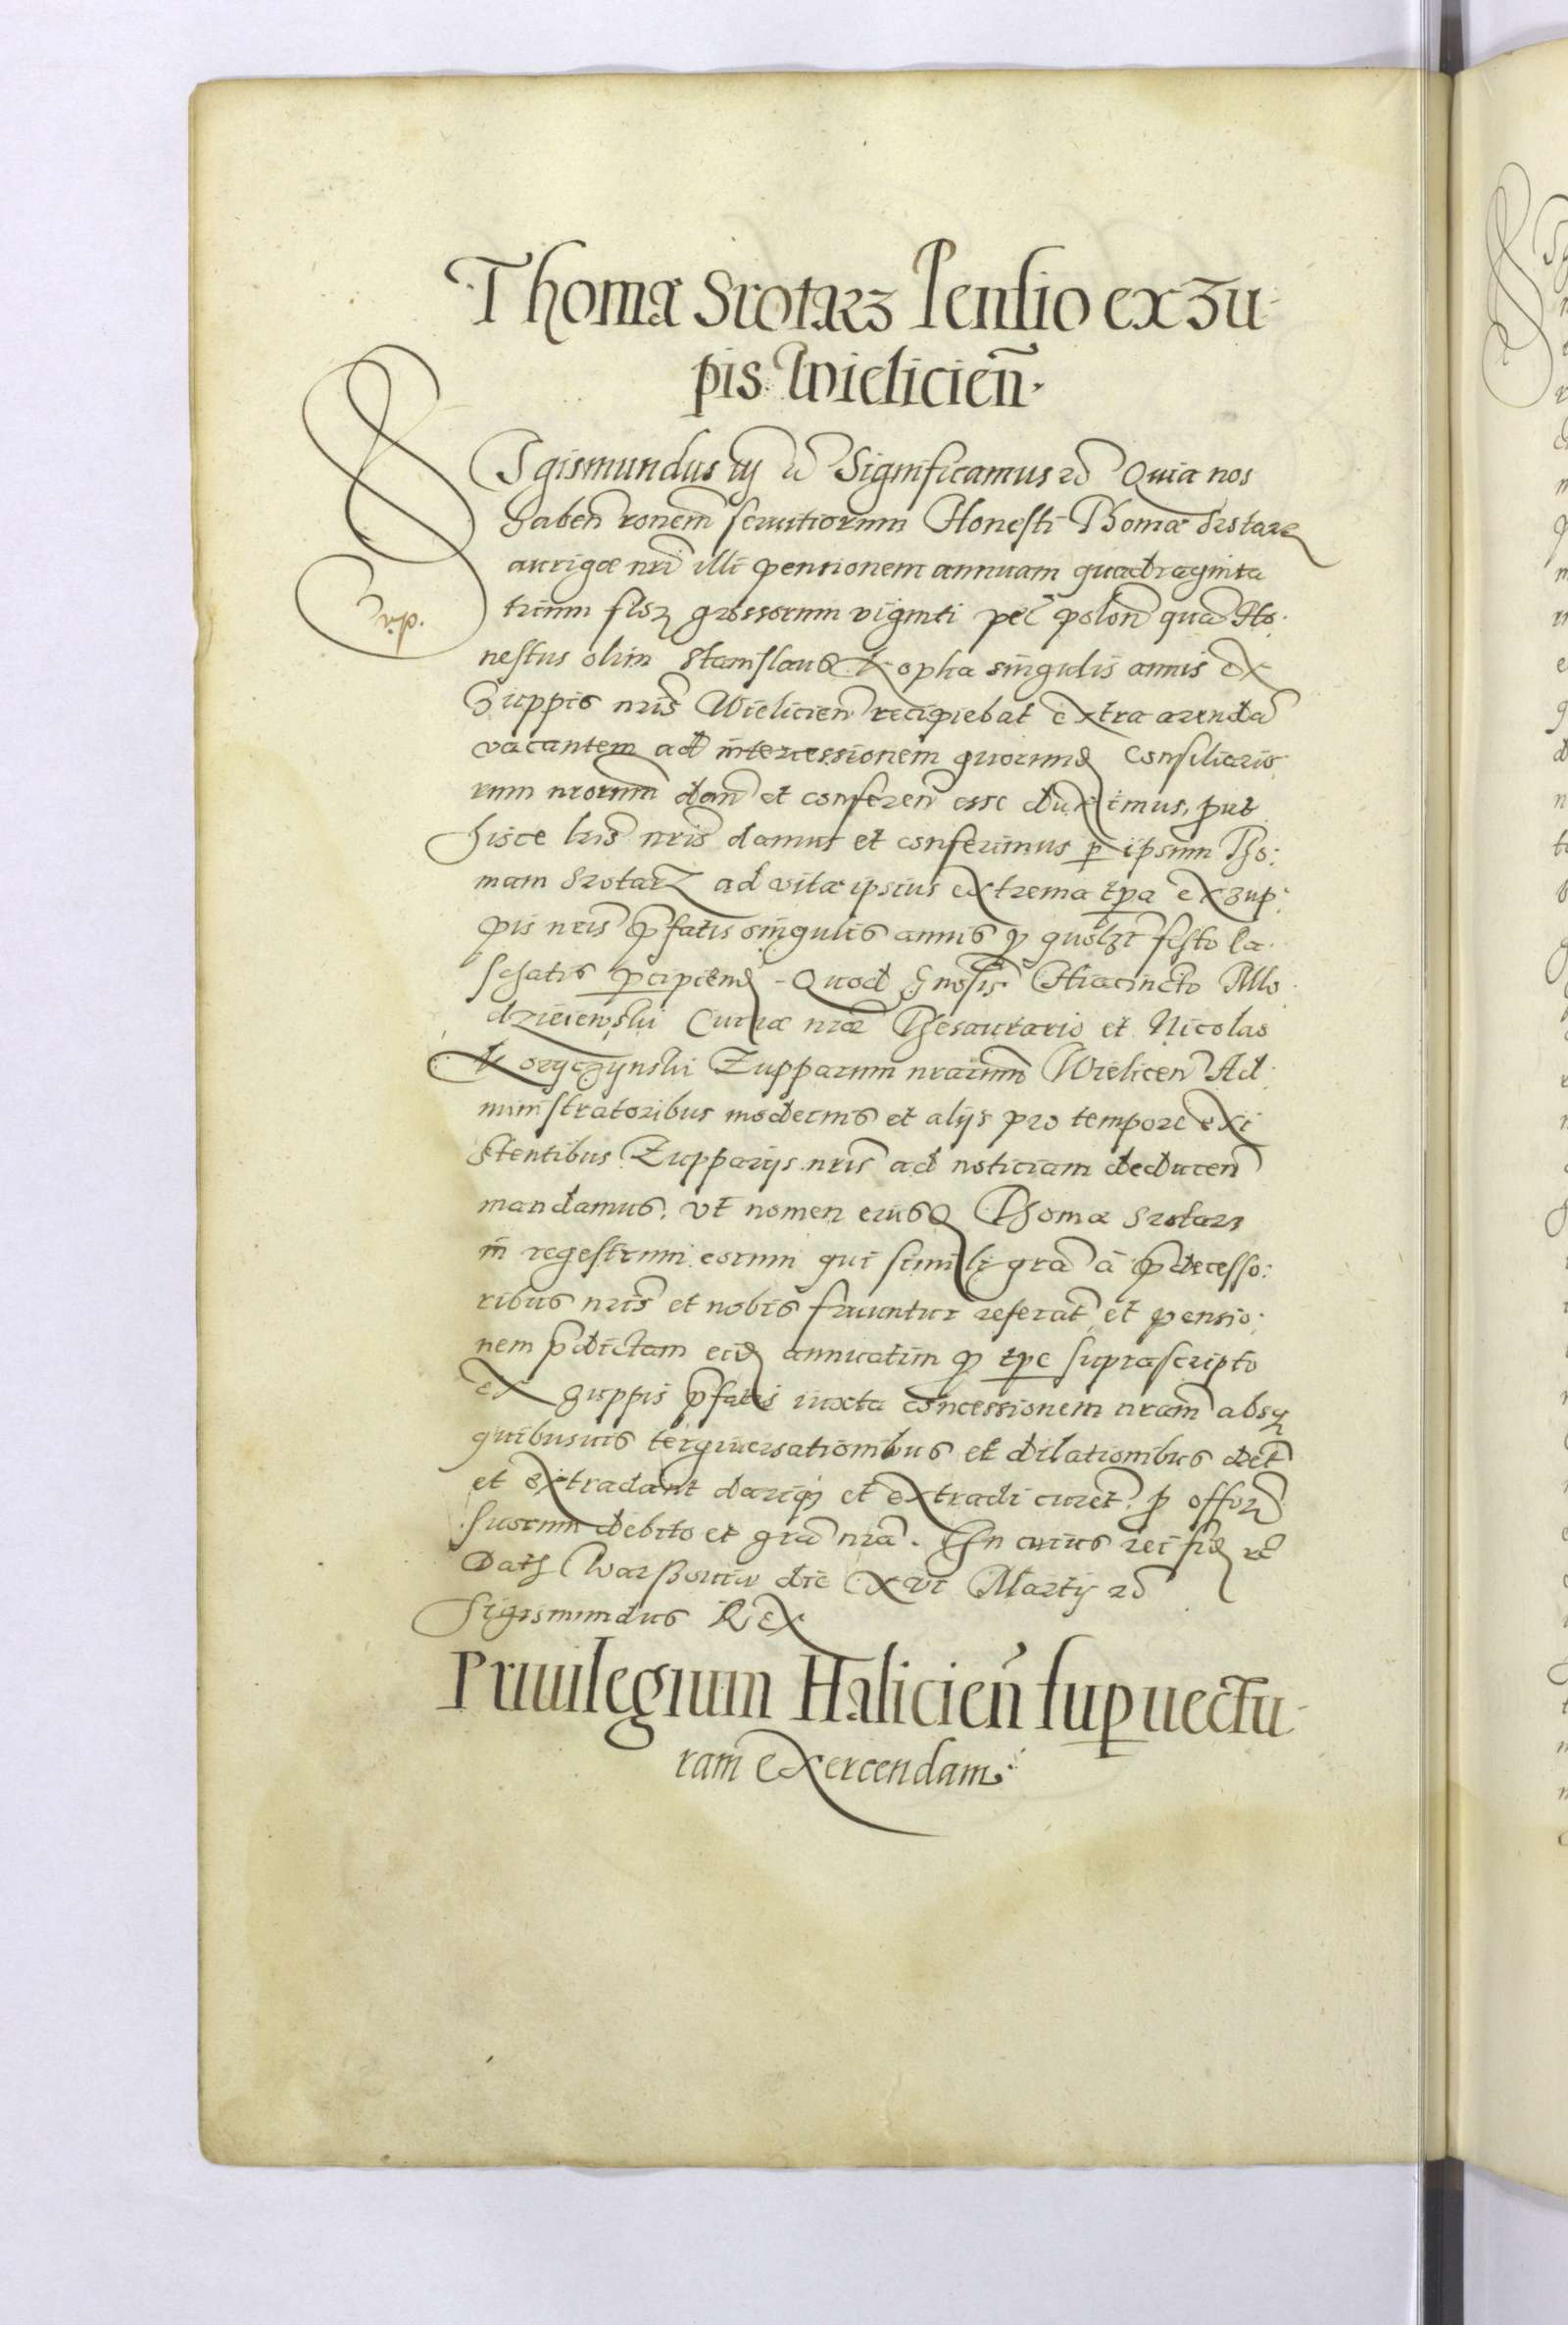 Thomæ Srotarz Pensio ex zu-
pis Wielicień.
SIgismundus iij ec Significamus ec Quia nos
haben̄ ronem̄ servitiorum Honesti Thomæ Srotarz
aurigæ nr̄i illi pensionem annuam quadraginta
trium flor̄ grossorum viginti pec̄ polon̄ quā Ho-
nestus olim Stanislaus Kopha singulis annis ex
Zuppis nr̄is Wielicien̄ recipiebat extra arendā
vacantem ad intercessionem quorund̄ Consiliario-
rum nr̄orum dan̄ et conferen̄ esse duximus, prut
hisce lr̄is nr̄is damus et conferimus p̄ ipsum Tho:
mam Srotarz ad vitæ ipsius extrema tp̄a ex zup-
pis nr̄is p̄fatis singulis annis p̄ quolz̄t festo Pa-
schatis p̄cipiend̄ - Quod Gnosis Hiacincto Mlo-
dzieiewski Curiæ nr̄æ Thesaurario et Nicolao
Koryczynski Zupparum nr̄arum Wielicen̄ Ad-
ministratoribus modernis et alijs pro tempore exi
stentibus Zupparijs nr̄is ad noticiam deducen̄
mandamus, vt nomen eiusd̄ Thomæ Srotarz
in regestrum eorum qui simili gr̄a à p̄decesso:
ribus nr̄is et nobis fruuntur referat̄ et pensio-
nem p̄dictam eid̄ annuatim p̄ tp̄e suprascripto
ex zuppis p̄fatis iuxta concessionem nr̄am absq̄
quibusuis tergiuersationibus et dilationibus det̄
et extradant dariq̄ et extradi curet̄ p̄ offor̄
suorum debito et gr̄a nr̄a. In cuius rei fid̄ ec
Dat̄ Warssouiæ die XVI Martij ec
Sigismundus Rex
Priuilegium Halicień sup̄ uectu-
ram exercendam.